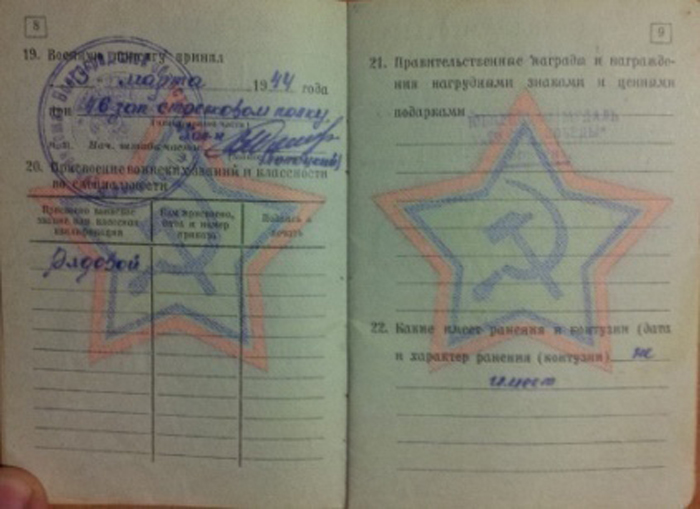 8
19. Военную присягу принял
марта 1944 года
при 48 зап. стрелковом полку
м. п. Нач.
20. Присвоение воинских званий и классности
по специальности
Присвоено воинское
звание или классная
квалификация
Кем присвоено,
дата и номер
приказа
Подпись и
печать
Рядовой
9
21. Правительственные награды и награжде-
ния нагрудными знаками и ценными
подарками
22. Какие имеет ранения и контузии (дата
и характер ранения (контузии) не
имеет